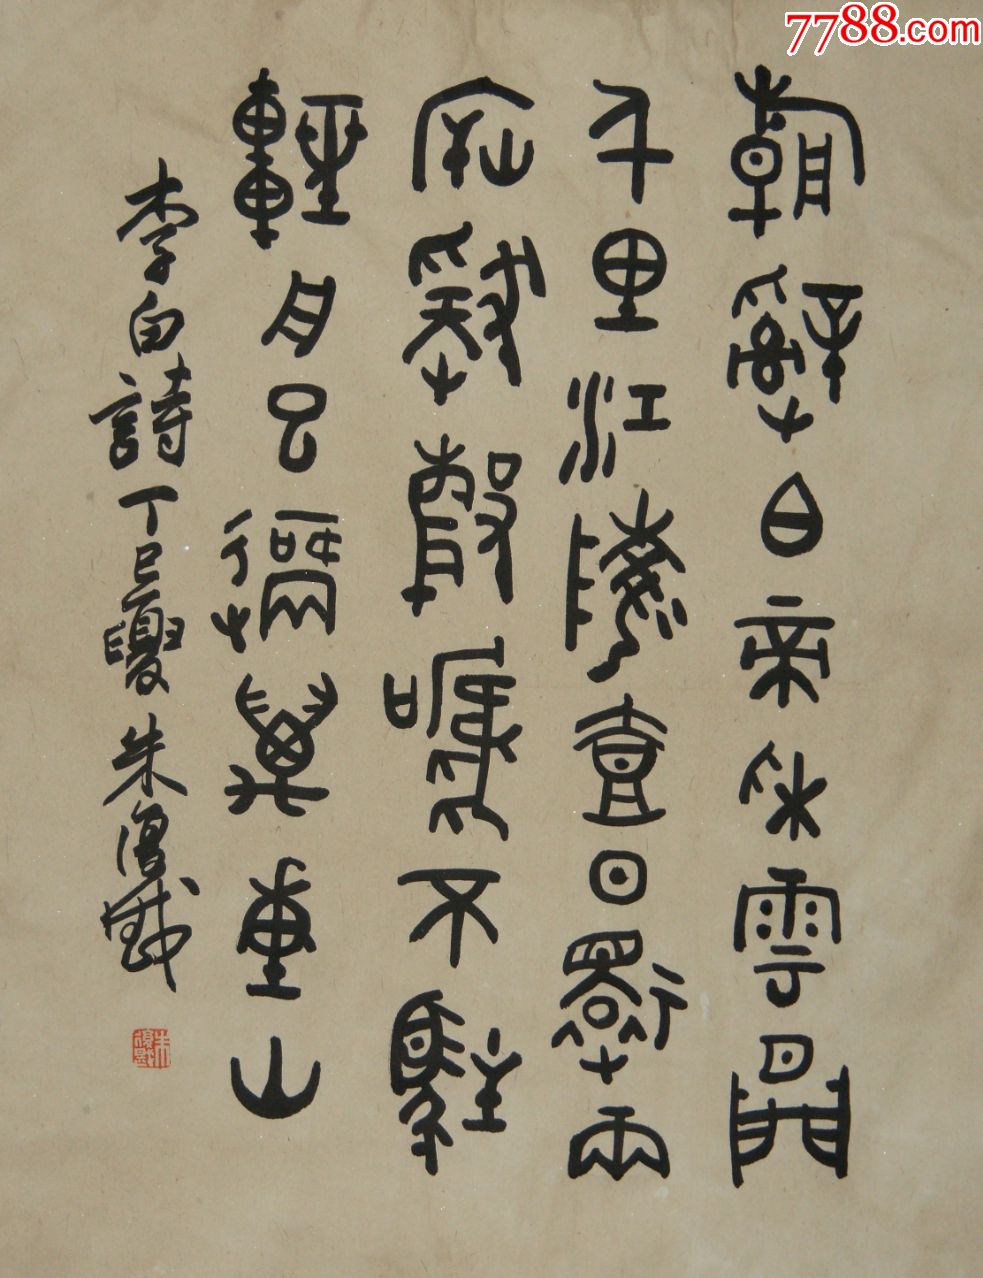 7788.com
朝辭白帝采雲間
千里江陵壹日還兩
岸猿聲啼不住
輕舟已過萬重山
李白詩丁巳夏朱復戡
朱復戡